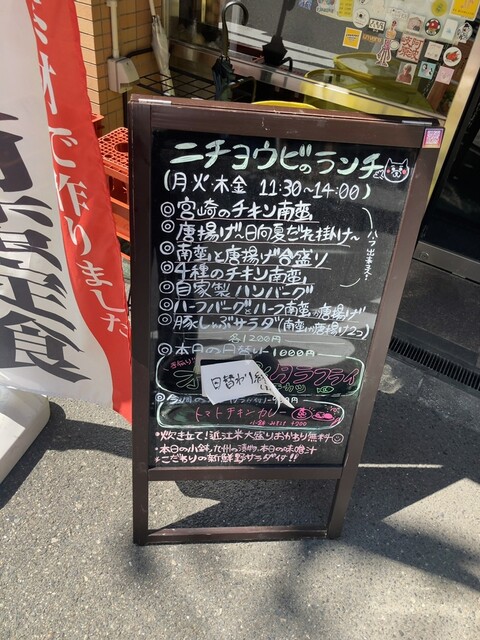 ニチヨウビのランチ
(月火・木金 11:30~14:00)
◎宮崎のチキン南蛮
◎唐揚げ!!日向夏だれ掛け~
◎南蛮と唐揚げ合盛り
◎4種のチキン南蛮
◎自家製ハンバーグ
◎ハーフバーグとハーフ南蛮or唐揚げ
◎豚しゃぶサラダ(南蛮or唐揚げ2コ)
各1200円
◎本日の日替り 1000円
フライ
日替わり
トマトチキンカレー
*炊き立て!近江米大盛りおかわり無料
*本日の小鉢、九州の漬物、本日の味噌汁
*こだわりの新鮮野サラダ付!!
で作りました
定食